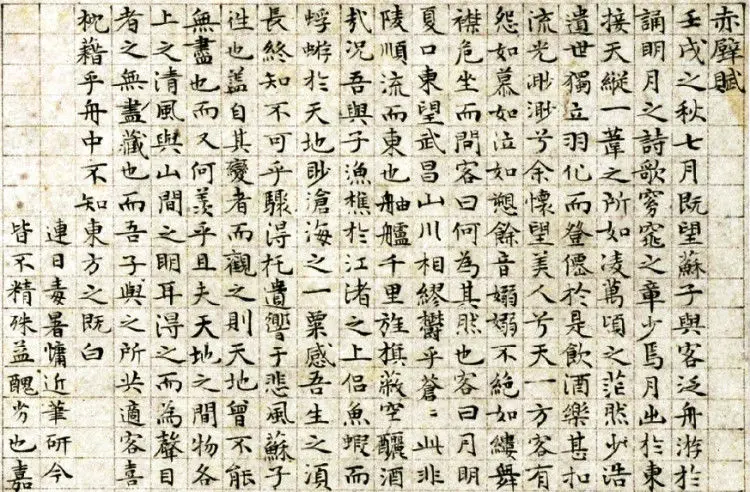 赤壁賦
壬戌之秋七月既望蘇子與客泛舟游於
誦明月之詩歌窈窕之章少焉月出於東
接天縱一葦之所如凌萬頃之茫然浩
遺世獨立羽化而登僊於是飲酒樂甚扣
流光渺渺兮余懷望美人兮天一方客有
怨如慕如泣如愬餘音嫋嫋不絕如縷舞
襟危坐而問客曰何為其然也客曰月明
夏口東望武昌山川相繆鬱乎蒼〻此非
陵順流而東也舳艫千里旌旗蔽空釃酒
哉況吾與子漁樵於江渚之上侶魚蝦而
蜉蝣於天地眇滄海之一粟感吾生之須
長終知不可乎驟得托遺響于悲風蘇子
往也蓋自其變者而觀之則天地曾不能
無盡也而又何羨乎且夫天地之間物各
上之清風與山間之明耳得之而為聲目
者之無盡藏也而吾子與之所共適客喜
枕藉乎舟中不知東方之既白
連日毒暑慵近筆研今
皆不精殊益醜劣也嘉